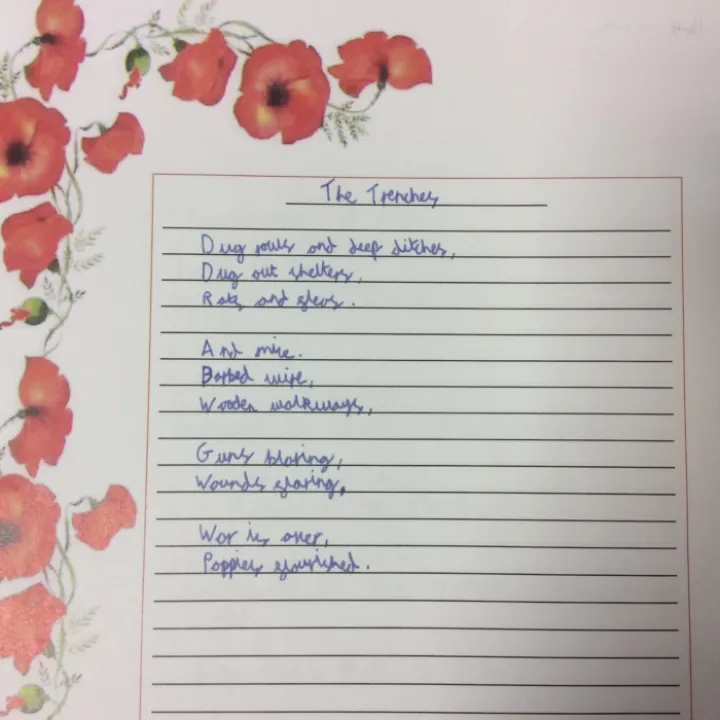 The Trenches
Dug outs and deep ditches,
Dug out shelters,
Rats and fleas.
And mice.
Barbed wire,
Wooden walkways,
Guns blazing,
Wounds
War is over,
Poppies flourished.